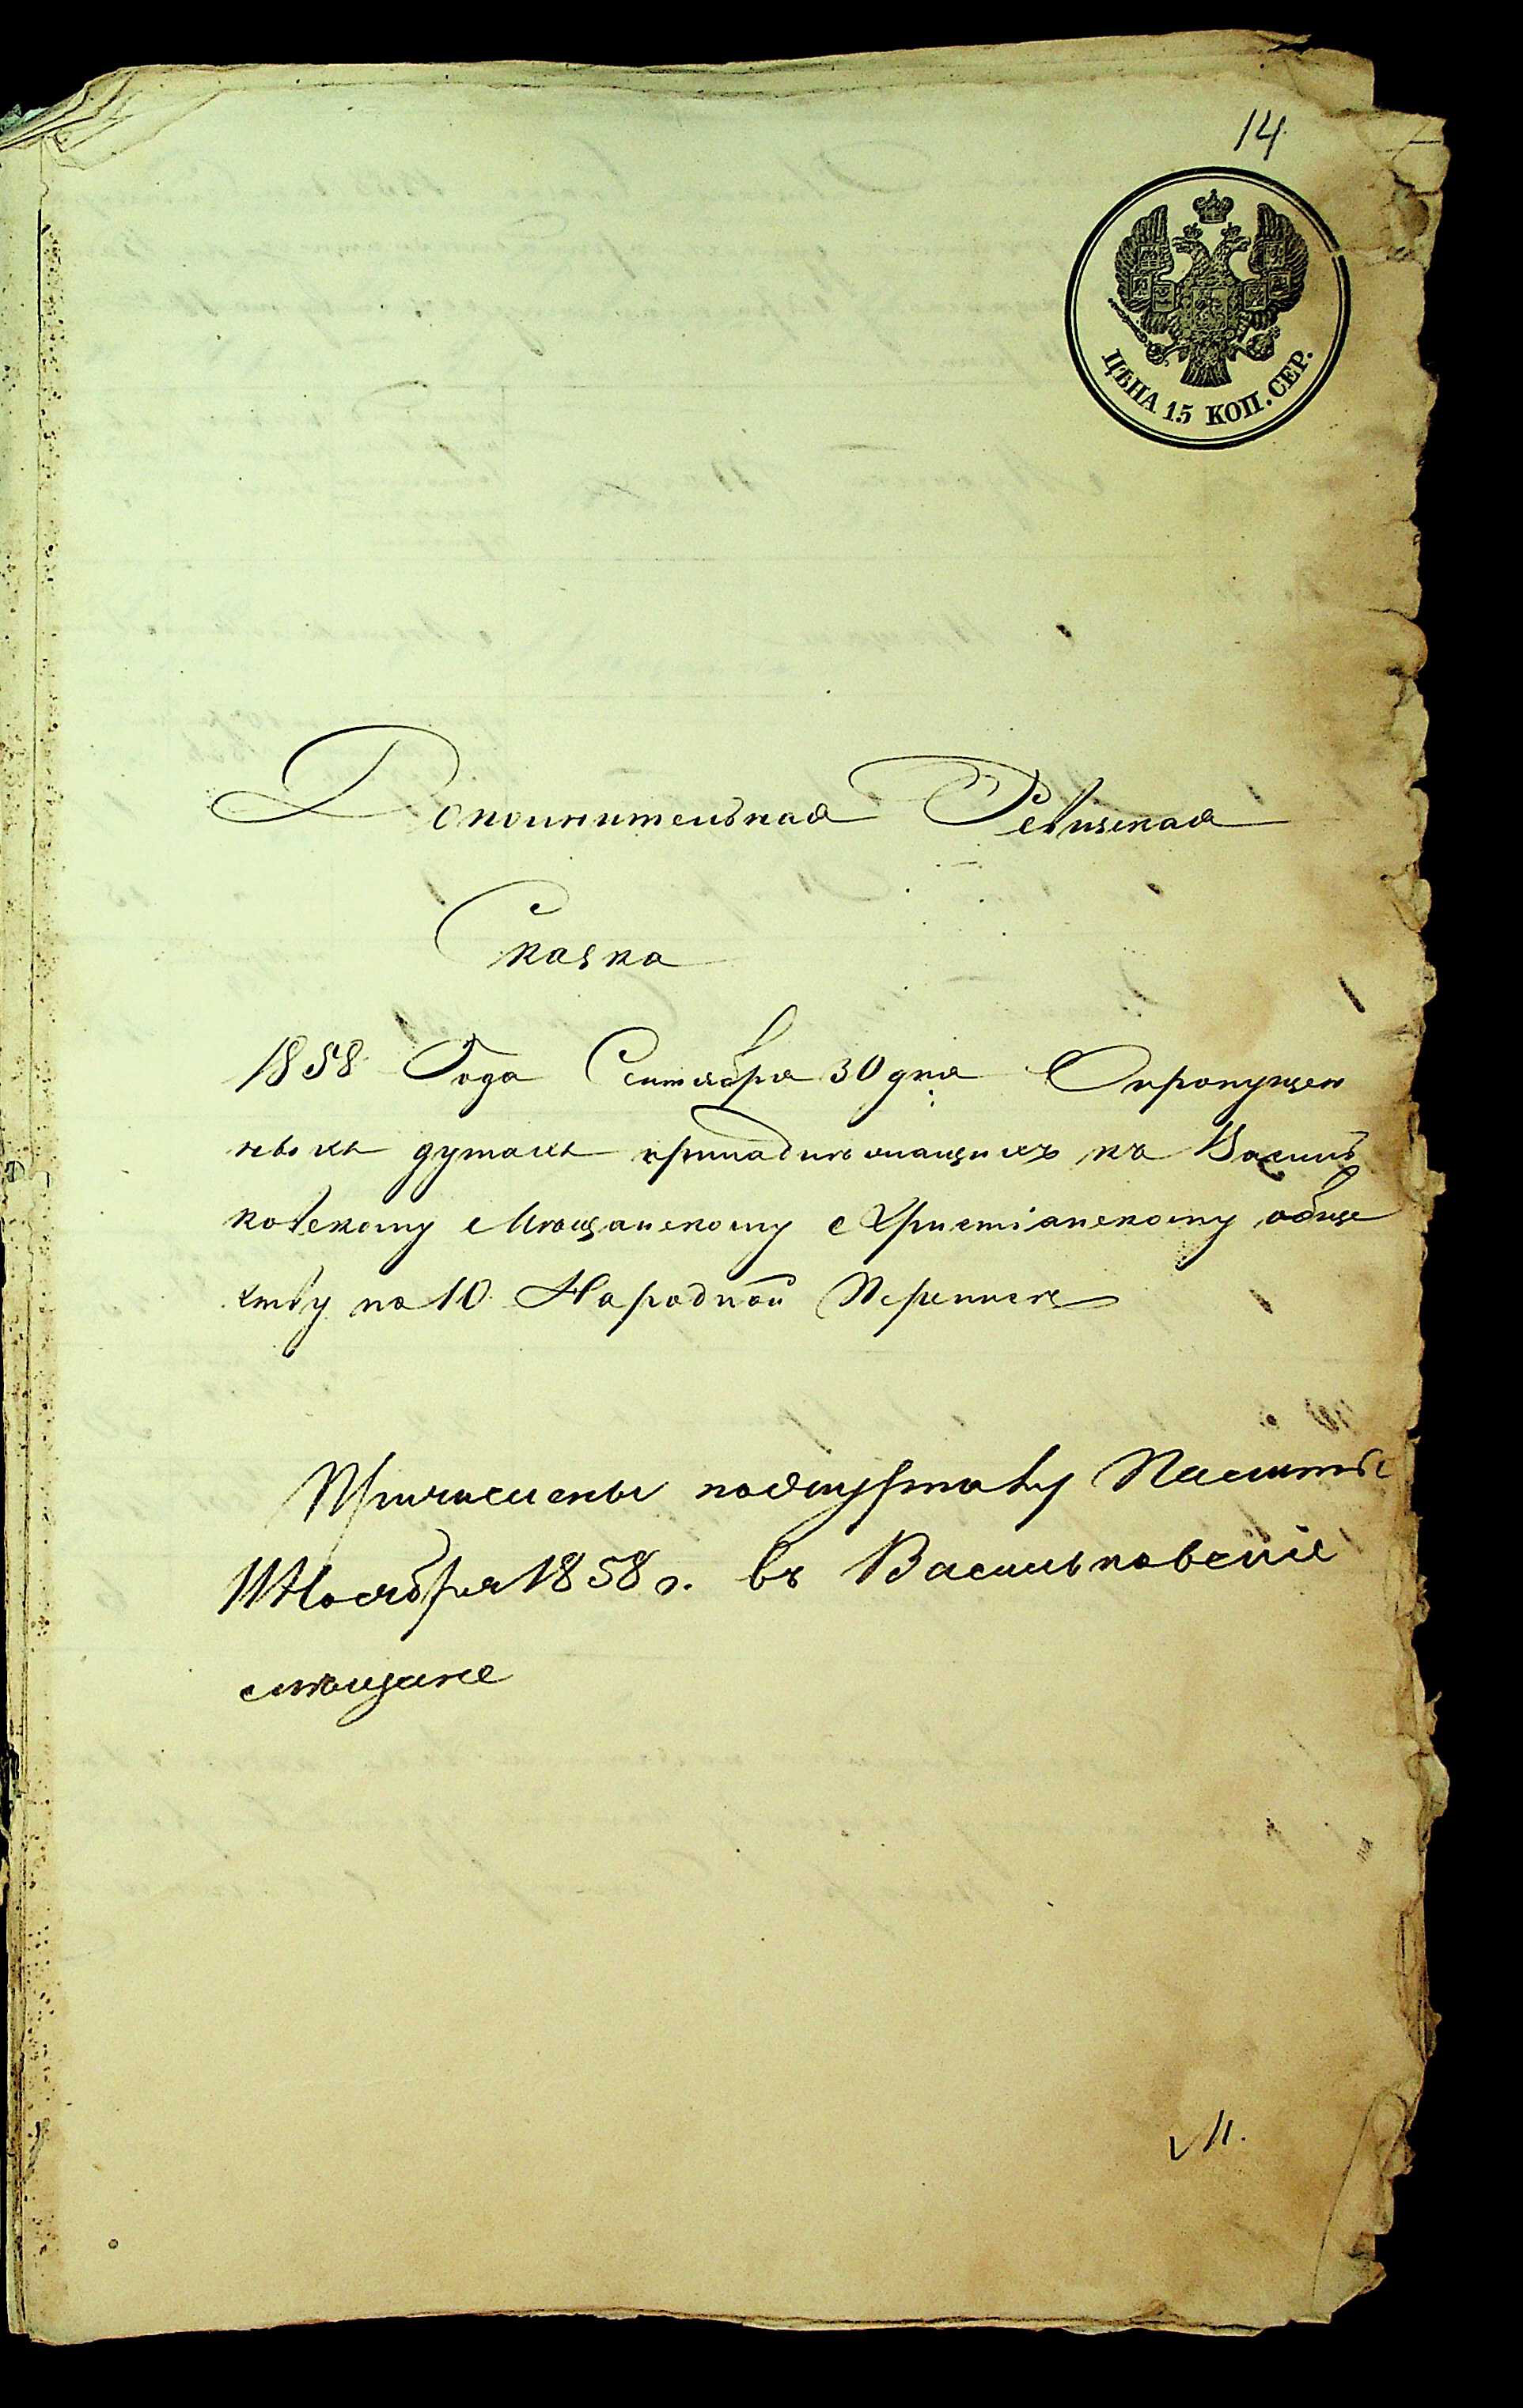 14
ЦѢНА 15 КОП. СЕР.
Дополнительная Ревизская
Сказка
1858 Года Сентября 30 дня О пропущен
ныхъ душахъ принадлежащихъ къ Василь
ковскому Мѣщанскому Христіанскому обще
ству по 10 Народной Переписи
Причислены по журналу Палаты
11 Ноября 1858 г. въ Васильковскіе
мѣщане